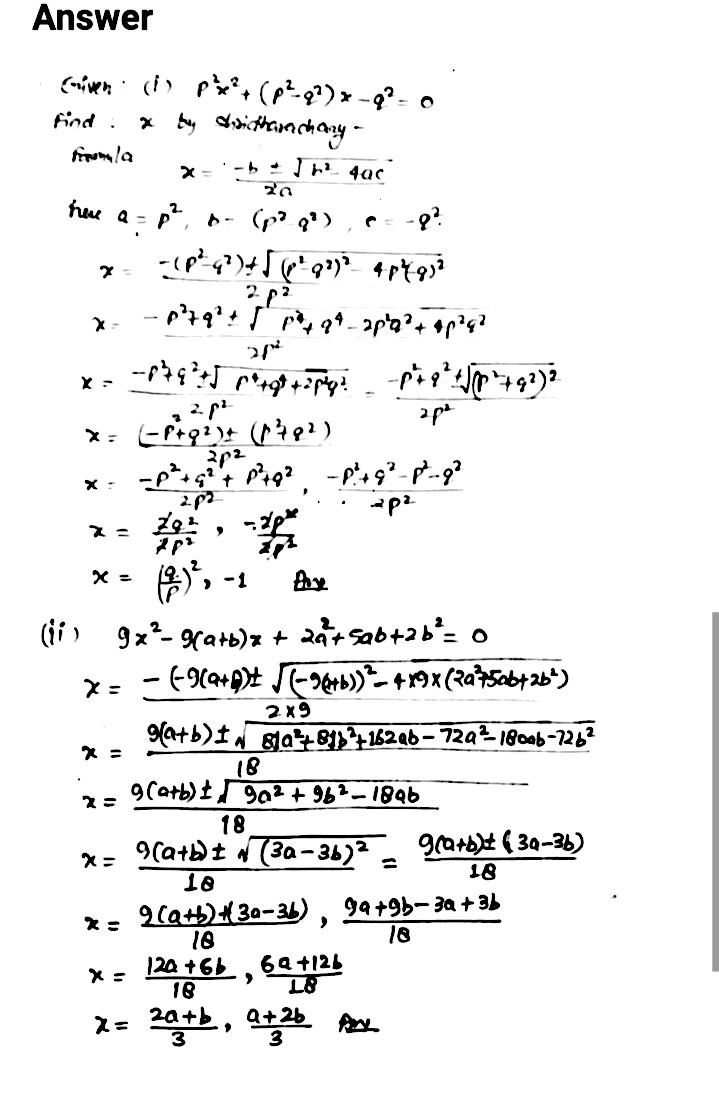 Answer
Given : (i) p²x² + (p²-q²)x - q² = 0
Find : x by shridharachary -
formula x = -b ± √b² 4ac / 2a
here a = p², b - (p² q²), c = -q².
x = -(p²-q²)±√(p²-q²)² 4p²(-q)² / 2p²
x = -p²+q² ± √p⁴+q⁴-2p²q²+4p²q² / 2p²
x = -p²+q²±√p⁴+q⁴+2p²q² / 2p² = -p²+q²±√(p²+q²)² / 2p²
x = (-p²+q²)± (p²+q²) / 2p²
x = -p²+q²+p²+q² / 2p², -p²+q²-p²-q² / 2p²
x = 2q² / 2p², -2p² / 2p²
x = (q/p)², -1 Ans
(ii) 9x²-9(a+b)x + 2a²+5ab+2b² = 0
x = -(-9(a+b)± √(-9(a+b))²-4×9×(2a²+5ab+2b²) / 2×9
x = 9(a+b)±√81a²+81b²+162ab-72a²-180ab-72b² / 18
x = 9(a+b)±√9a²+9b²-18ab / 18
x = 9(a+b)± √(3a-3b)² / 18 = 9(a+b)±(3a-3b) / 18
x = 9(a+b)+(3a-3b) / 18, 9a+9b-3a+3b / 18
x = 12a+6b / 18, 6a+12b / 18
x = 2a+b / 3, a+2b / 3 Ans